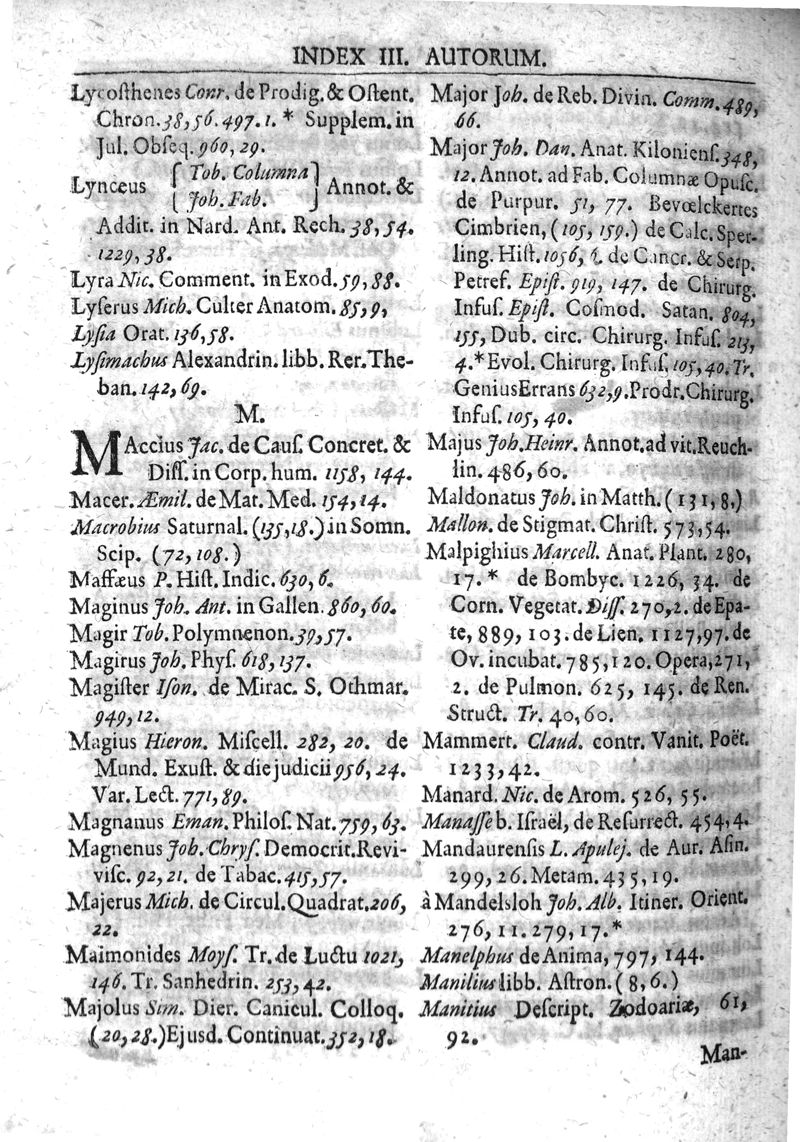 INDEX III. AUTORUM.
Lycoſthenes Conr. de Prodig. & Oſtent.
Chron. 38, 56. 497. 1. * Supplem. in
Jul. Obſeq. 960, 29.
Lynceus { Tob. Columna } Annot. &
{ Joh. Fab. }
Addit. in Nard. Ant. Rech. 38, 54.
1229, 38.
Lyra Nic. Comment. in Exod. 59, 88.
Lyſerus Mich. Culter Anatom. 85, 9,
Lyſia Orat. 136, 58.
Lyſimachus Alexandrin. libb. Rer. The-
ban. 142, 69.
M.
MAccius Jac. de Cauſ. Concret. &
Diſſ. in Corp. hum. 1158, 144.
Macer. Æmil. de Mat. Med. 154, 14.
Macrobius Saturnal. (135, 18.) in Somn.
Scip. (72, 108.)
Maffæus P. Hiſt. Indic. 630, 6.
Maginus Joh. Ant. in Gallen. 860, 60.
Magir Tob. Polymnenon. 39, 57.
Magirus Joh. Phyſ. 618, 137.
Magiſter Iſon. de Mirac. S. Othmar.
949, 12.
Magius Hieron. Miſcell. 282, 20. de
Mund. Exuſt. & die judicii 956, 24.
Var. Lect. 771, 89.
Magnanus Eman. Philoſ. Nat. 759, 63.
Magnenus Joh. Chryſ. Democrit. Revi-
viſc. 92, 21. de Tabac. 415, 57.
Majerus Mich. de Circul. Quadrat. 206,
22.
Maimonides Moyſ. Tr. de Luctu 1021,
146. Tr. Sanhedrin. 253, 42.
Majolus Sim. Dier. Canicul. Colloq.
(20, 28.) Ejusd. Continuat. 352, 18.
Major Joh. de Reb. Divin. Comm. 489,
66.
Major Joh. Dan. Anat. Kilonienſ. 348,
12. Annot. ad Fab. Columnæ Opuſc.
de Purpur. 51, 77. Bevœlckertes
Cimbrien, (105, 159.) de Calc. Sper-
ling. Hiſt. 1056, de Cancr. & Serp.
Petref. Epiſt. 919, 147. de Chirurg.
Infuſ. Epiſt. Coſmod. Satan. 804,
155, Dub. circ. Chirurg. Infuſ. 213,
4. * Evol. Chirurg. Infuſ. 105, 40. Tr.
Genius Errans 632, 9. Prodr. Chirurg.
Infuſ. 105, 40.
Majus Joh. Heinr. Annot. ad vit. Reuch-
lin. 486, 60.
Maldonatus Joh. in Matth. (131, 8.)
Mallon. de Stigmat. Chriſt. 573, 54.
Malpighius Marcell. Anat. Plant. 280,
17. * de Bombyc. 1226, 34. de
Corn. Vegetat. Diſſ. 270, 2. de Epa-
te, 889, 103. de Lien. 1127, 97. de
Ov. incubat. 785, 120. Opera, 271,
2. de Pulmon. 625, 145. de Ren.
Struct. Tr. 40, 60.
Mammert. Claud. contr. Vanit. Poët.
1233, 42.
Manard. Nic. de Arom. 526, 55.
Manaſſe b. Iſraël, de Reſurrect. 454, 4.
Mandaurenſis L. Apulej. de Aur. Aſin.
299, 26. Metam. 435, 19.
à Mandelsloh Joh. Alb. Itiner. Orient.
276, 11. 279, 17. *
Manelphus de Anima, 797, 144.
Manilius libb. Aſtron. (8, 6.)
Manitius Deſcript. Zodoariæ, 61,
92.
Man-